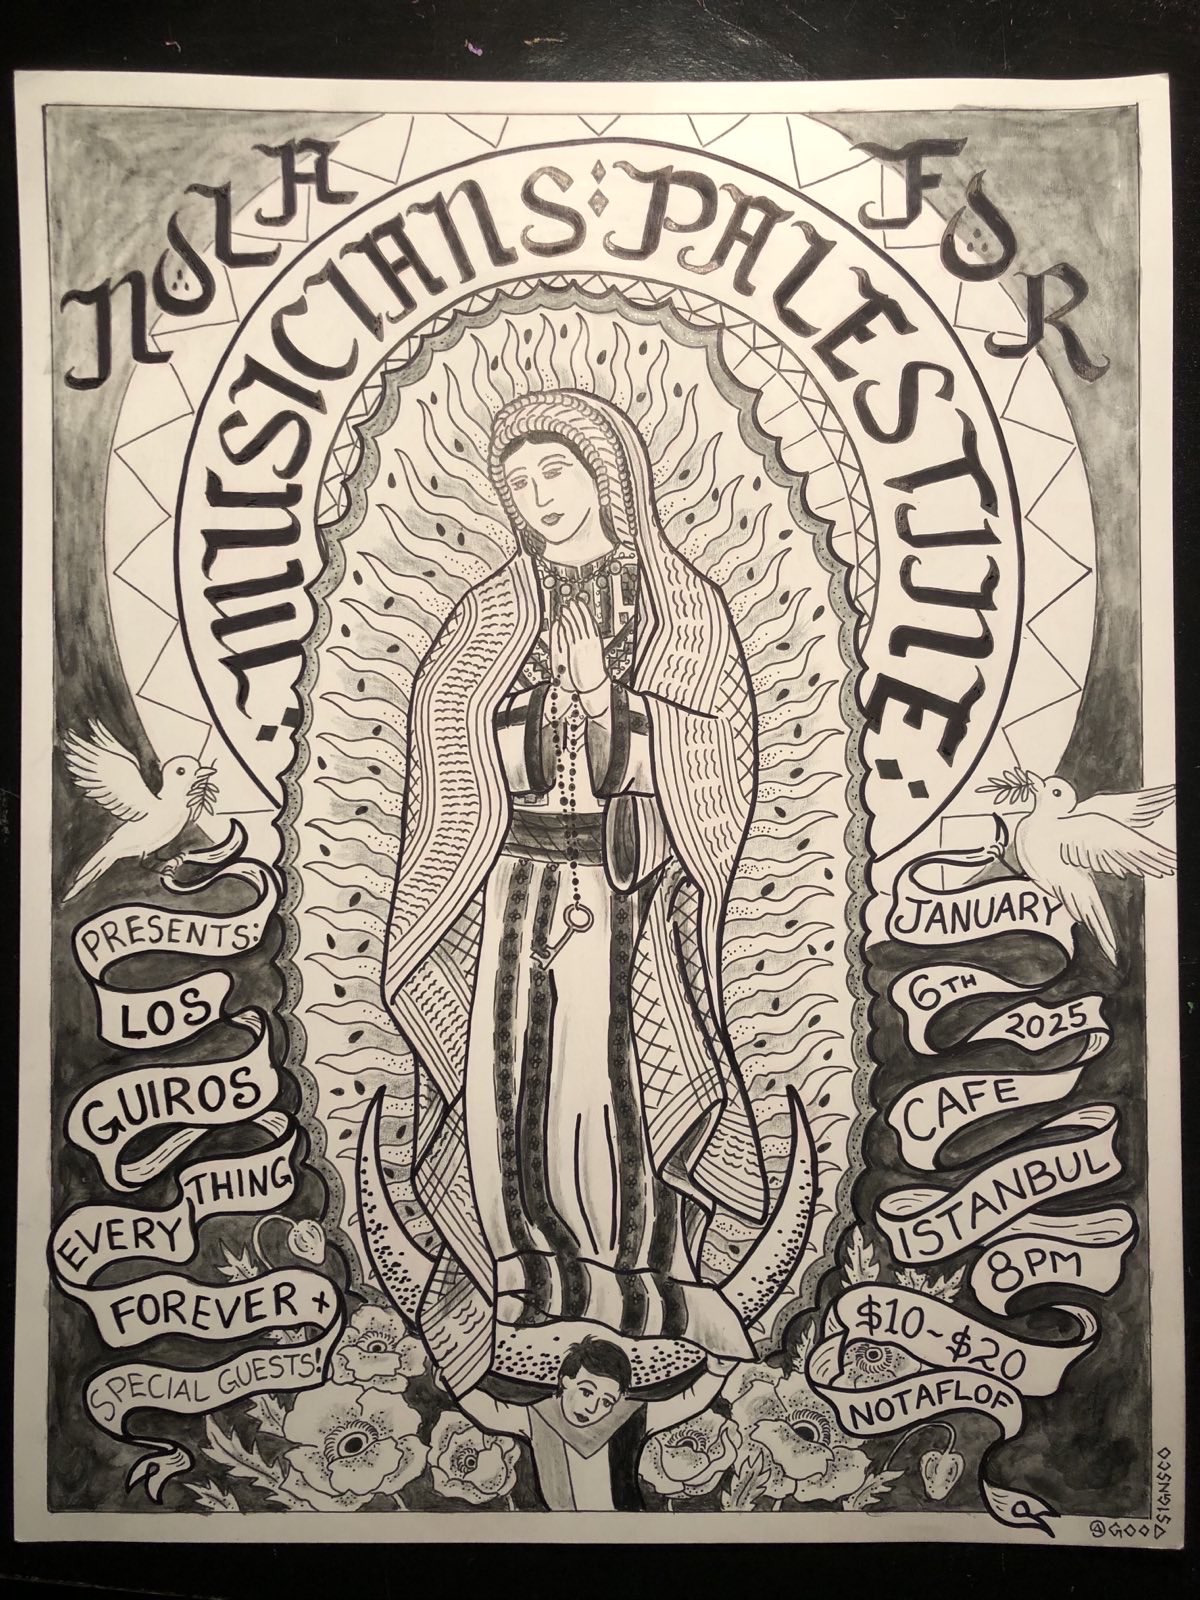 NOLA
MUSICIANS
FOR
PALESTINE
PRESENTS:
LOS
GUIROS
EVERY THING
FOREVER +
SPECIAL GUESTS!
JANUARY
6TH
2025
CAFE
ISTANBUL
8PM
$10-$20
NOTAFLOF
@GOODSIGNSCO